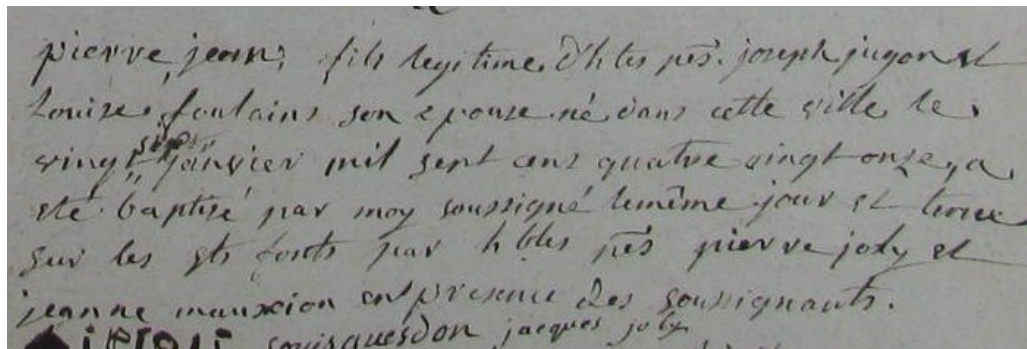 pierre jean, fils legitime d'h bles pes. joseph jugon et
louise foulains son epouse né dans cette ville le
vingt sept janvier mil sept cens quatre vingt onze, a
eté baptisé par moy soussigné le même jour et tenu
sur les sts fonts par h bles pes pierre joly et
jeanne mauxion en presence des soussignants.
louis quesdon jacques joly